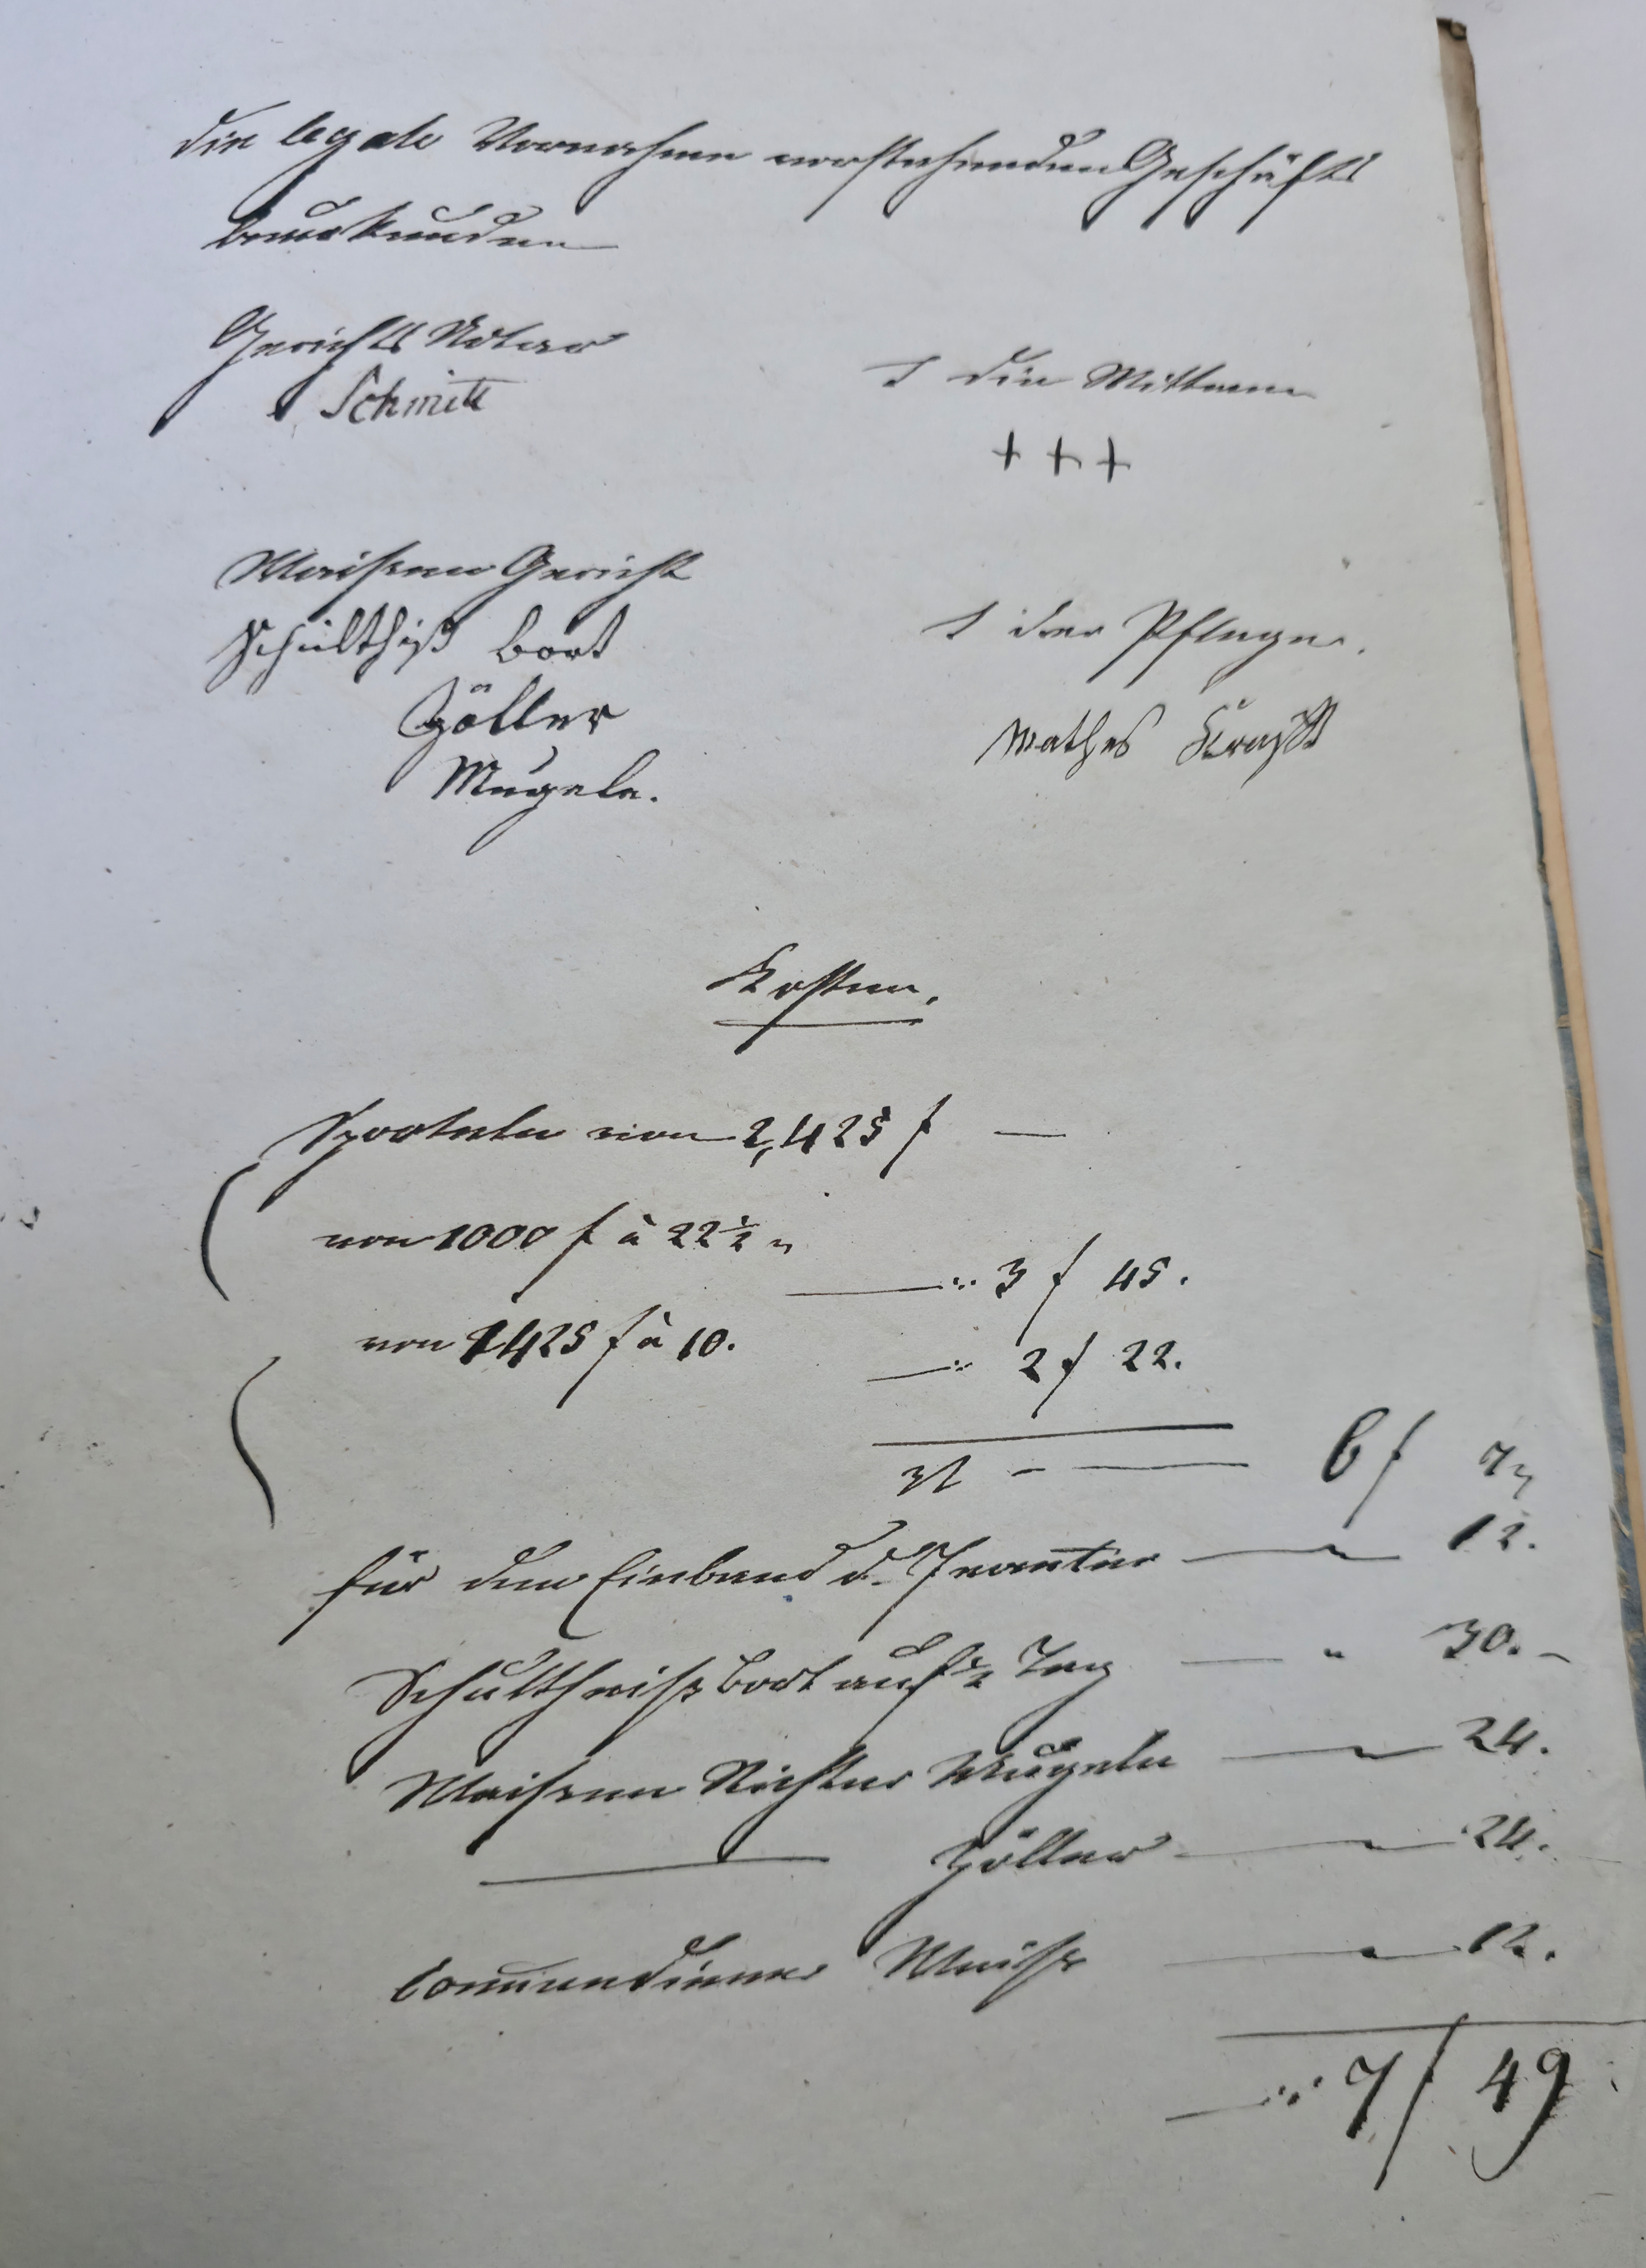 die legale Vornahme vorstehenden Geschäfts
beurkunden
Gerichts Notar
Schmitt
T die Wittwe
+++
Waisen Gericht
Schultheiß Bort
Zöller
Mugele.
T der Pfleger.
Mathes Kraft
Kosten.
Sporteln von 2,425 f —
von 1000 f à 22½
— : 3 f 45.
von 1425 f à 10.
— : 2 f 22.
— 6 f 7
für den Einband d. Inventur — 12.
Schultheiß Bort auf ½ Tag — " 30. -
Waisen Richter Mugele — 24.
— Zöller — 24.
Waiß — 12.
— : 7 f 49